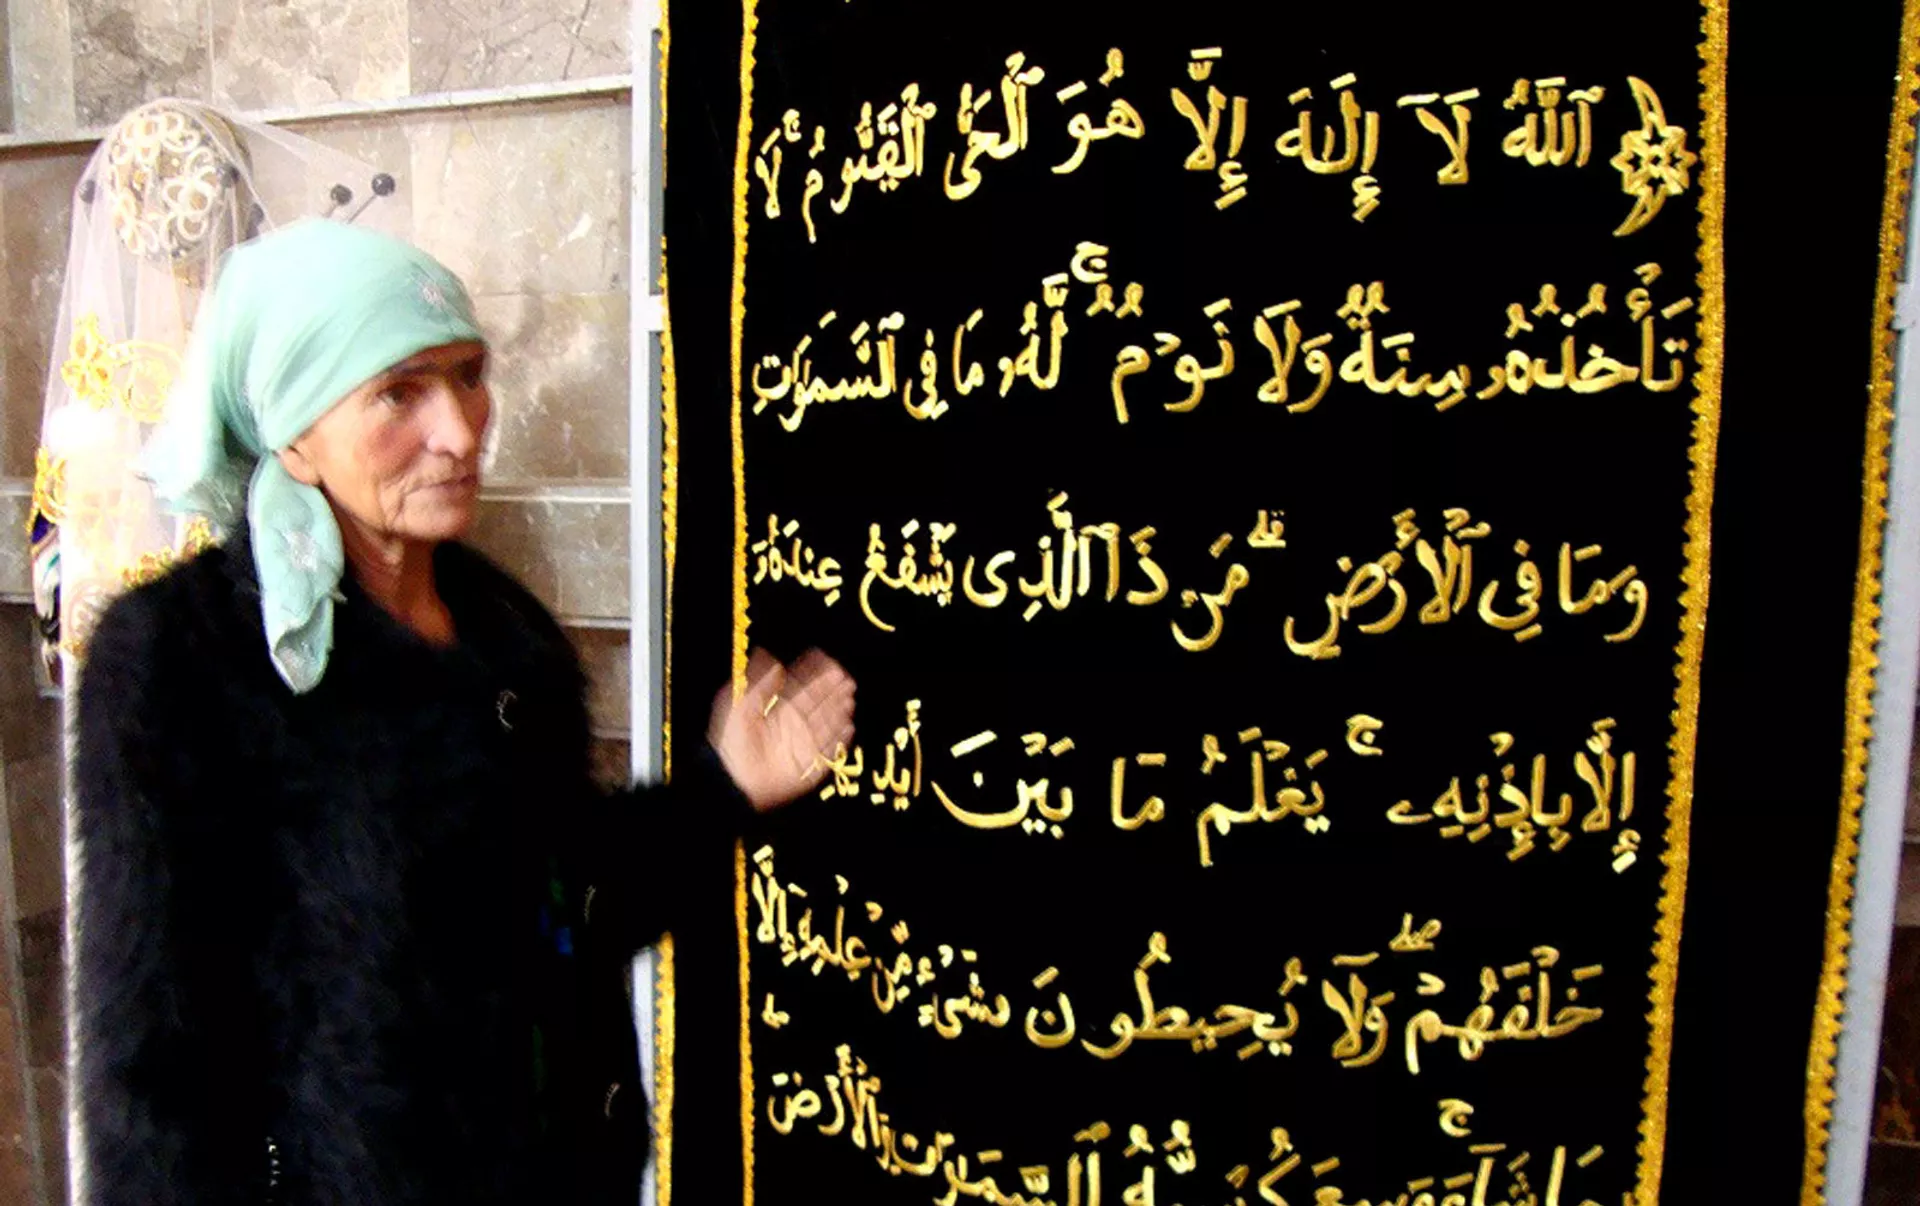 ٱللَّهُ لَآ إِلَـٰهَ إِلَّا هُوَ ٱلْحَىُّ ٱلْقَيُّومُ ۚ لَا
تَأْخُذُهُۥ سِنَةٌ وَلَا نَوْمٌ ۚ لَّهُۥ مَا فِى ٱلسَّمَـٰوَٰتِ
وَمَا فِى ٱلْأَرْضِ ۗ مَن ذَا ٱلَّذِى يَشْفَعُ عِندَهُۥٓ
إِلَّا بِإِذْنِهِۦ ۚ يَعْلَمُ مَا بَيْنَ أَيْدِيهِمْ
خَلْفَهُمْ ۖ وَلَا يُحِيطُونَ بِشَىْءٍ مِّنْ عِلْمِهِۦٓ إِلَّا
شَآءَ ۚ وَسِعَ كُرْسِيُّهُ ٱلسَّمَـٰوَٰتِ وَٱلْأَرْضَ ۖ